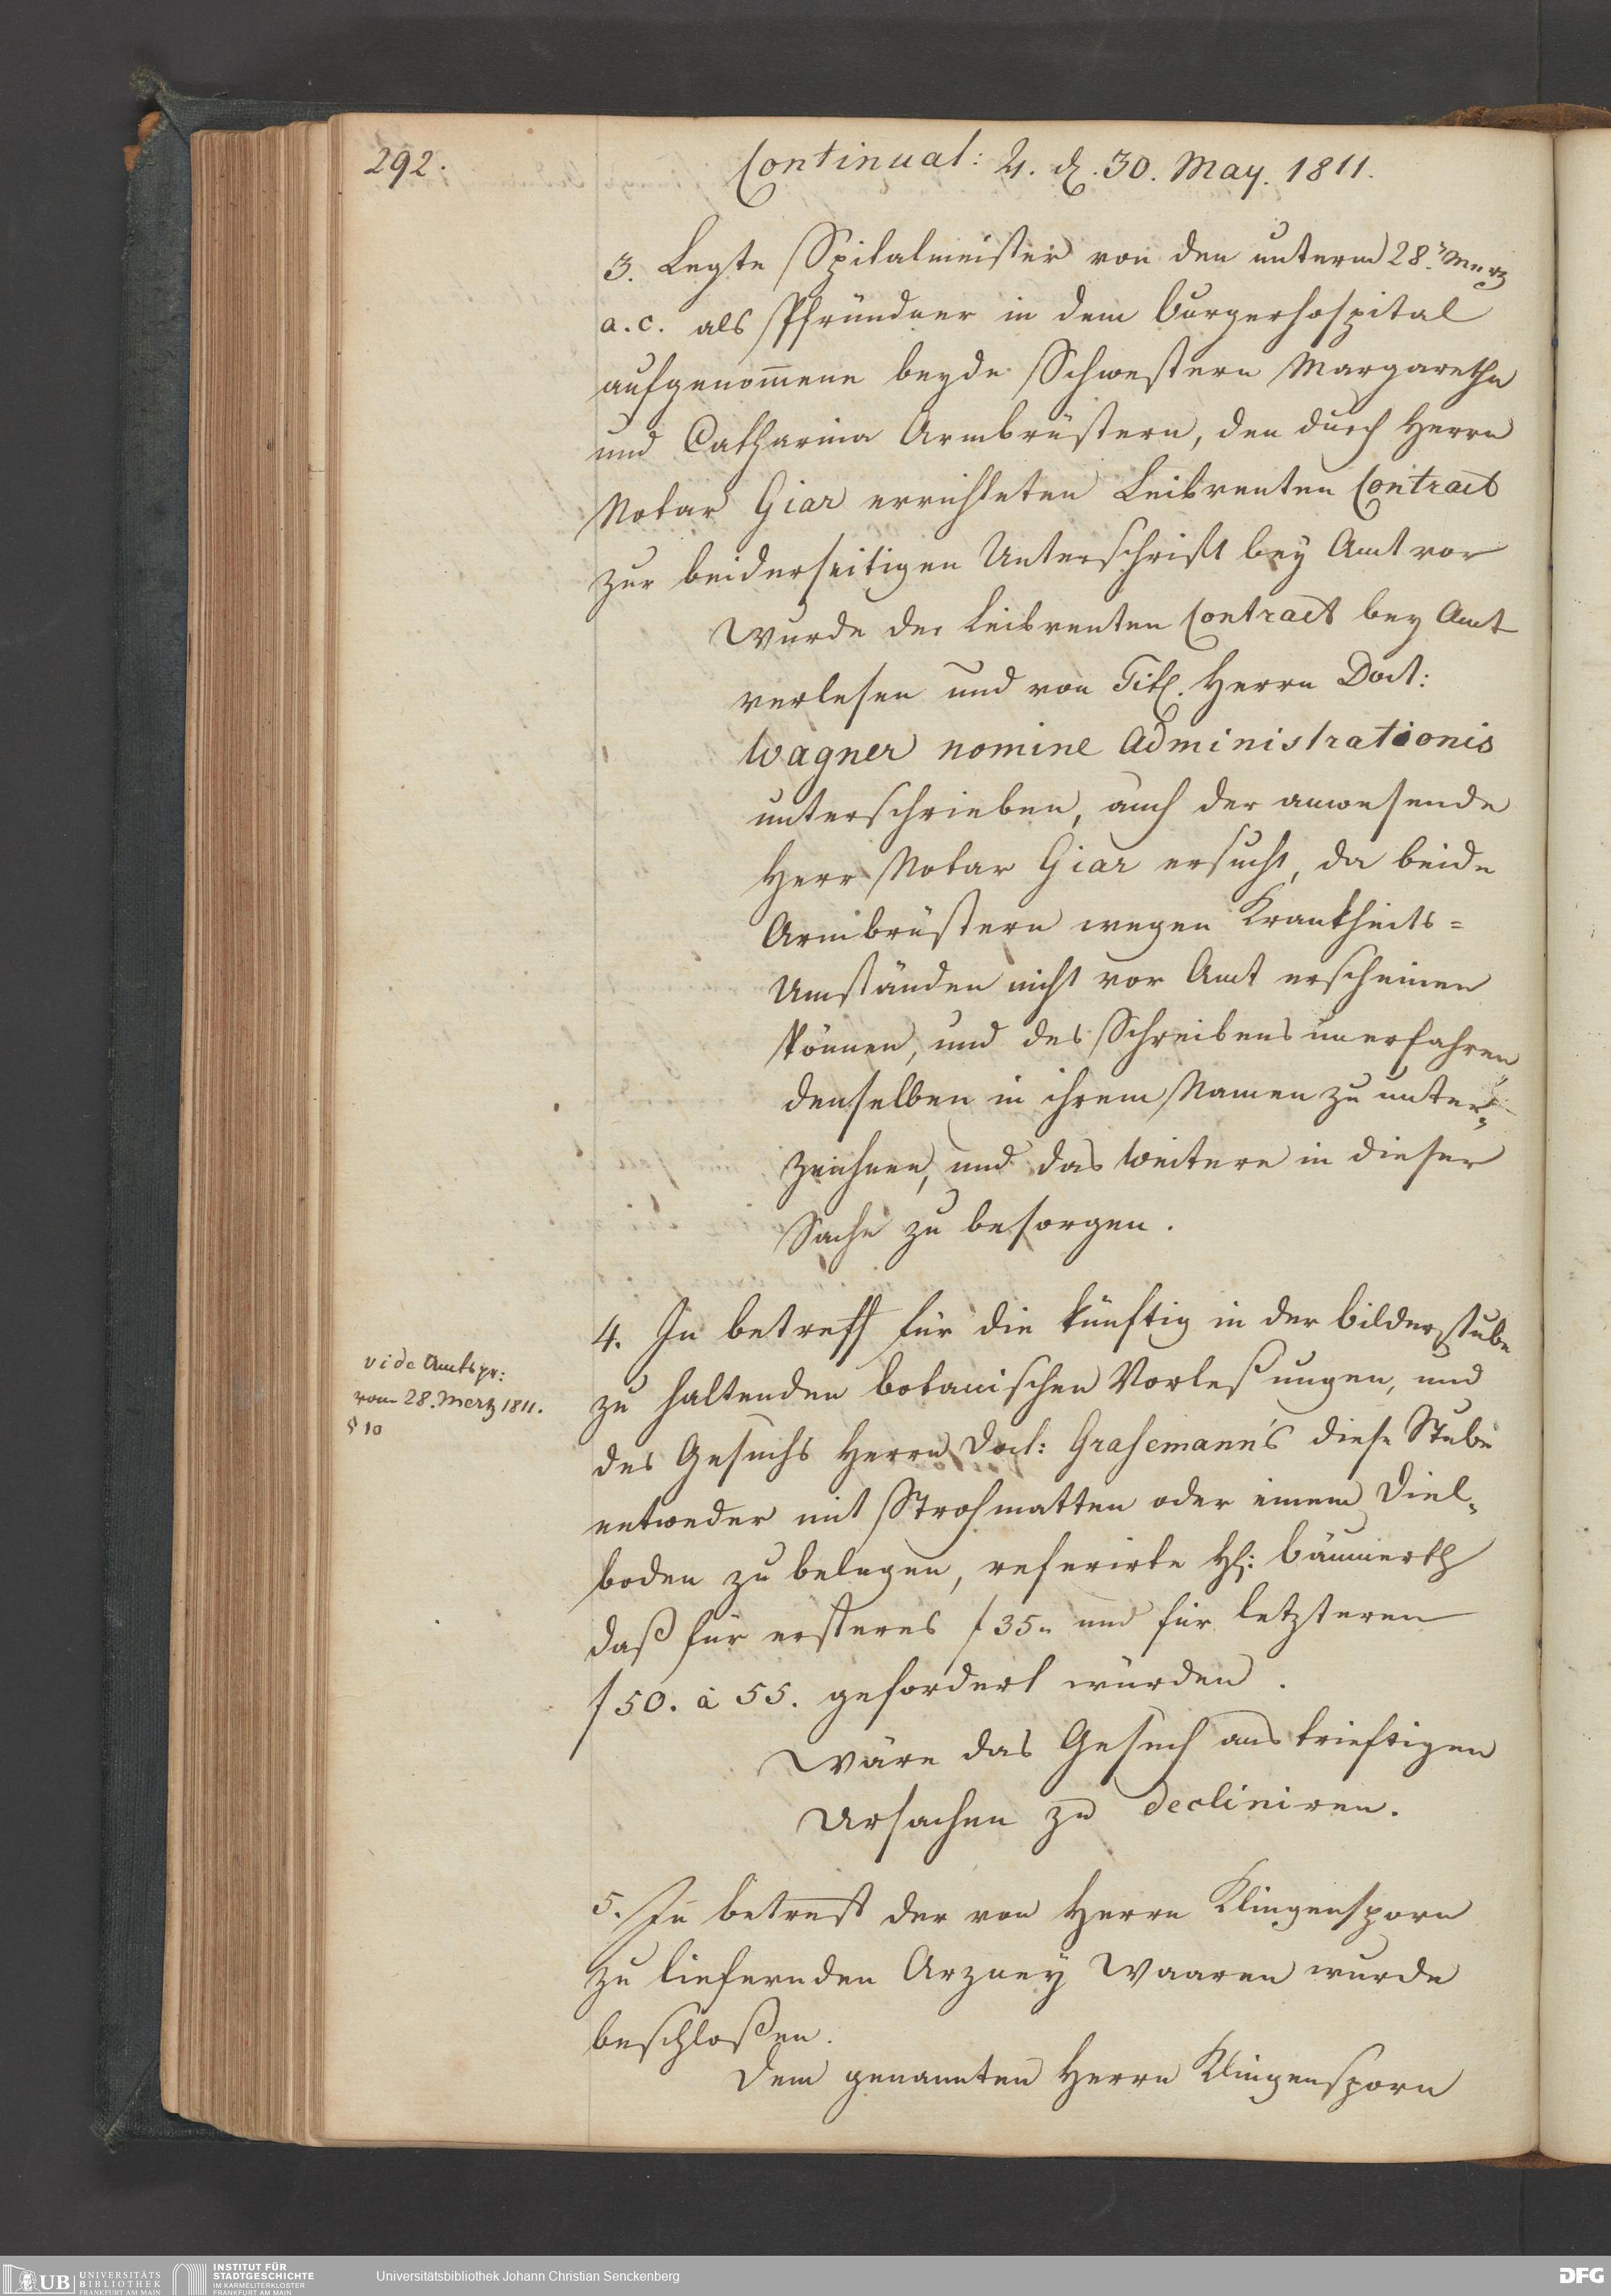 292.
Continuat: ♃. d. 30. May. 1811.
3. Legte Spitalmeister von den unterm 28. Merz
a. c. als Pfründner in dem Burgerhospital
aufgenom̅ene beyde Schwestern Margaretha
und Catharina Armbrüstern, den durch Herrn
Notar Giar errichteten Leibrenten Contract
zur beiderseitigen Unterschrift bey Amt vor
Wurde der Leibrenten Contract bey Amt
verlesen und von Tit. Herrn Doct:
Wagner nomine Administrationis
unterschrieben, auch der anwesende
Herr Notar Giar ersucht, da beide
Armbrüstern wegen Krankheits=
Umständen nicht vor Amt erscheinen
können, und des Schreibens unerfahren,
denselben in ihrem Namen zu unter=
zeichnen, und das weitere in dieser
Sache zu besorgen.
vide Amtspr:
vom 28. Mertz 1811.
§ 10
4. In betreff für die künftig in der bilderstube
zu haltenden botanischen Vorleßungen, und
des Gesuchs Herrn Doct: Grasemann's diese Stube
entweder mit Strohmatten oder einem Diel=
boden zu belegen, referirte H: Bäumerth
daß für ersteres f 35. und für letzteren
f 50. à 55. gefordert würden.
Wäre das Gesuch aus trieftigen
Ursachen zu decliniren.
5. In betreff der von Herrn Klingensporn
zu liefernden Arzney Waaren wurde
beschloßen.
Dem genannten Herrn Klingensporn
UB UNIVERSITÄTS
BIBLIOTHEK
FRANKFURT AM MAIN
INSTITUT FÜR
STADTGESCHICHTE
IM KARMELITERKLOSTER
FRANKFURT AM MAIN
Universitätsbibliothek Johann Christian Senckenberg
DFG